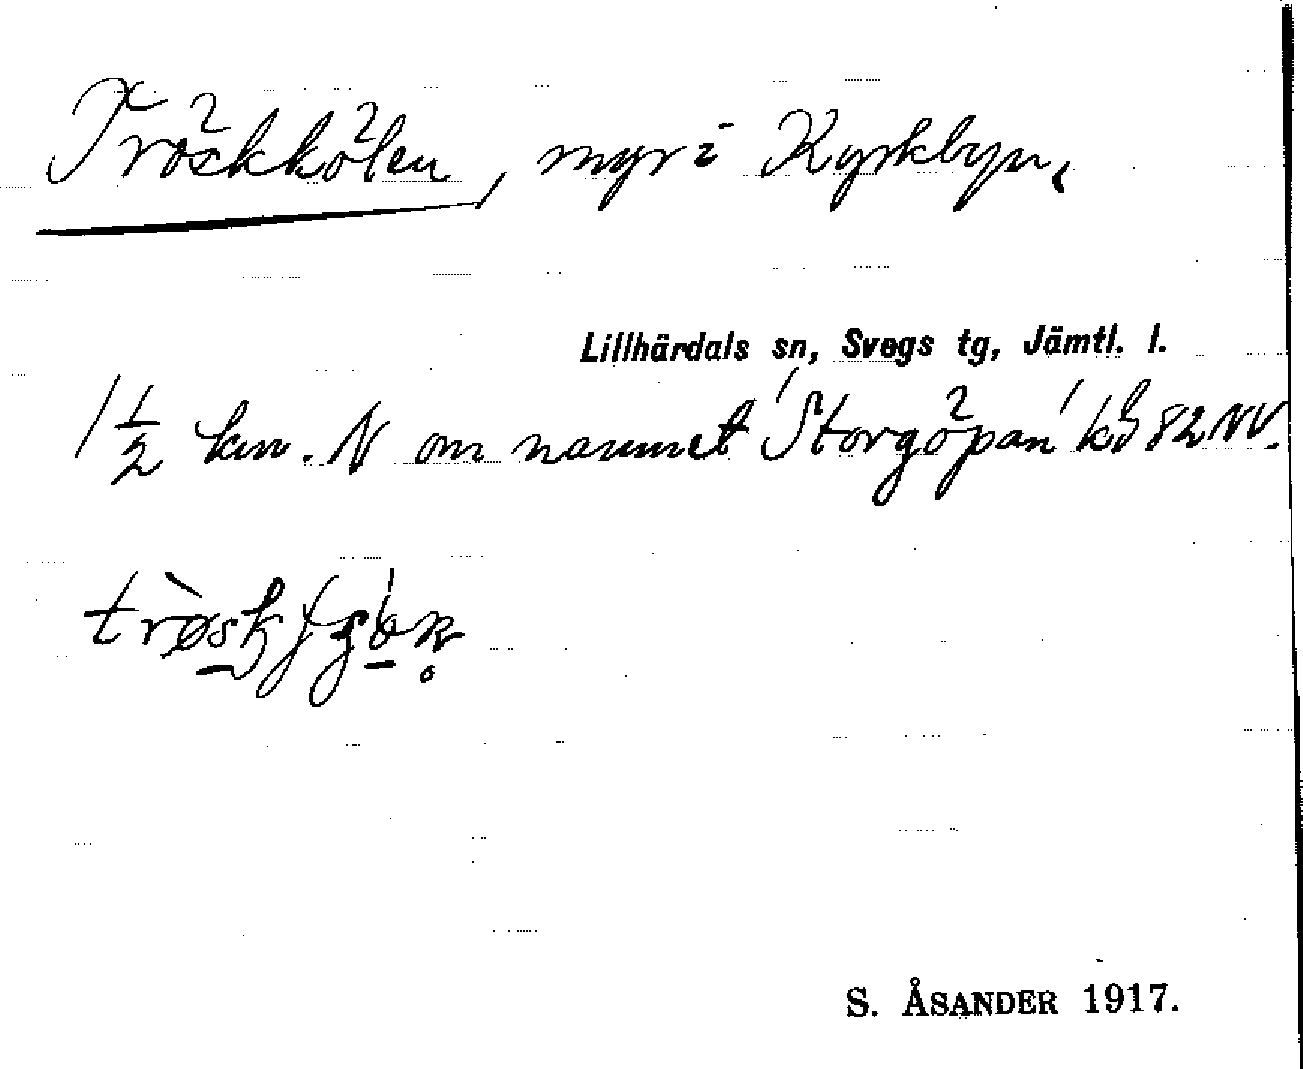 Tröskkölen, myr i Kyrkbyn,
Lillhärdals sn, Svegs tg, Jämtl. l.
1 1/2 km. N om namnet 'Storgöpan' kbl 82 NV.
S. ÅSANDER 1917.